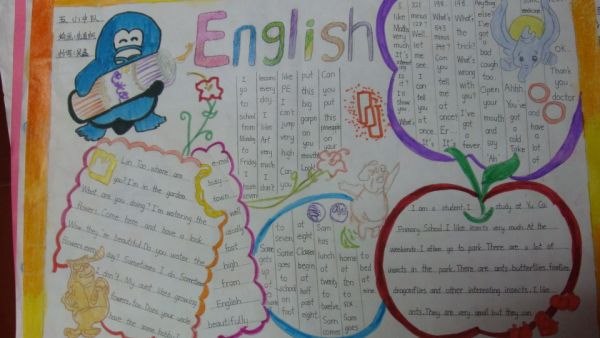 English
I
go
to
school
from
Monday
to
Friday
I
learn
every
day.
I
like
Art
very
much
I
don't
like
PE
I
can't
jump
very
high.
Can
you
put
this
big
on
your
mouth
Look!
Can
you
put
this
pineapple
on
your
I
like
Maths
very
much
It's
Is
it?
I'll
show
you.
What's
321
minus
129?
Well,
let
me
see
I
can
tell
you
at
once.
It's
198.
What's
543
minus
347?
at
once.
Er...
It's
198.
What's
the
trick?
What's
wrong
with
you?
I've
got
a
fever.
Anything
else?
I've
got
a
bad
cough
too.
Open
your
mouth
and
say
'Ah'
Ahhh.
You've
got
a
cold
Take
and
have
a
lot
of
OK.
Thank
you
doctor
Lin Tao, where are
you? I'm in the garden.
What are you doing? I'm watering the
flowers. Come here and have a look.
Wow, they're beautiful. Do you water the
flowers every day? Sometimes I do. Sometimes
I don't. My aunt likes growing
flowers, too. Does your uncle
have the same hobby?
e-mail
busy
town
well
usually
fast
high
from
English
beautifully
Sam
gets
up
at
to
seven.
Sam
goes
to
school
on
foot
at
eight.
Classes
begin
at
half
past
eight.
Sam
has
lunch
at
Sam
goes
home
at
ten
to
six.
Sam
goes
to
bed
at
nine.
I am a student. I study at Yu Cai
Primary School. I like insects very much. At the
weekends, I often go to park. There are a lot of
insects in the park. There are ants, butterflies, fireflies,
dragonflies and other interesting insects. I like
ants. They are very small but they can